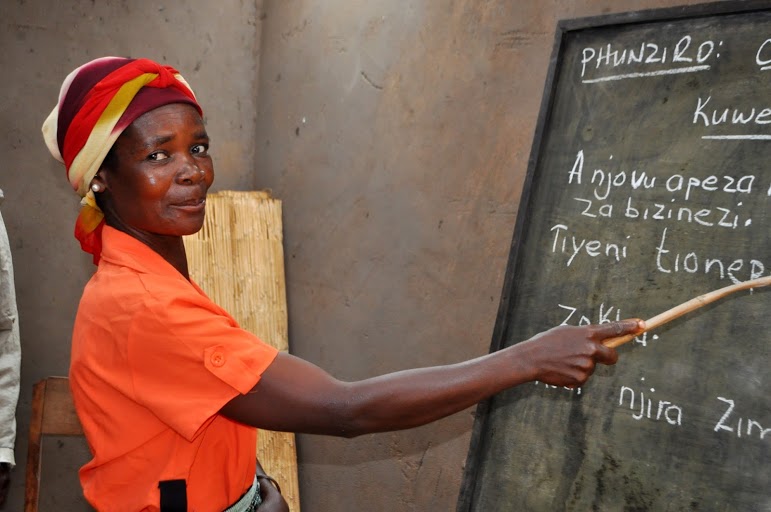 PHUNZIRO:
Kuwe
Anjovu apeza
za bizinezi.
Tiyeni tionep
njira Zim